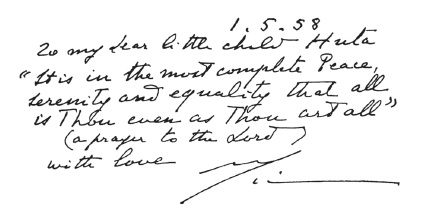 1.5.58
To my dear little child Huta
"It is in the most complete Peace,
serenity and equality that all
is Thou even as Thou art all"
(a prayer to the Lord)
with love